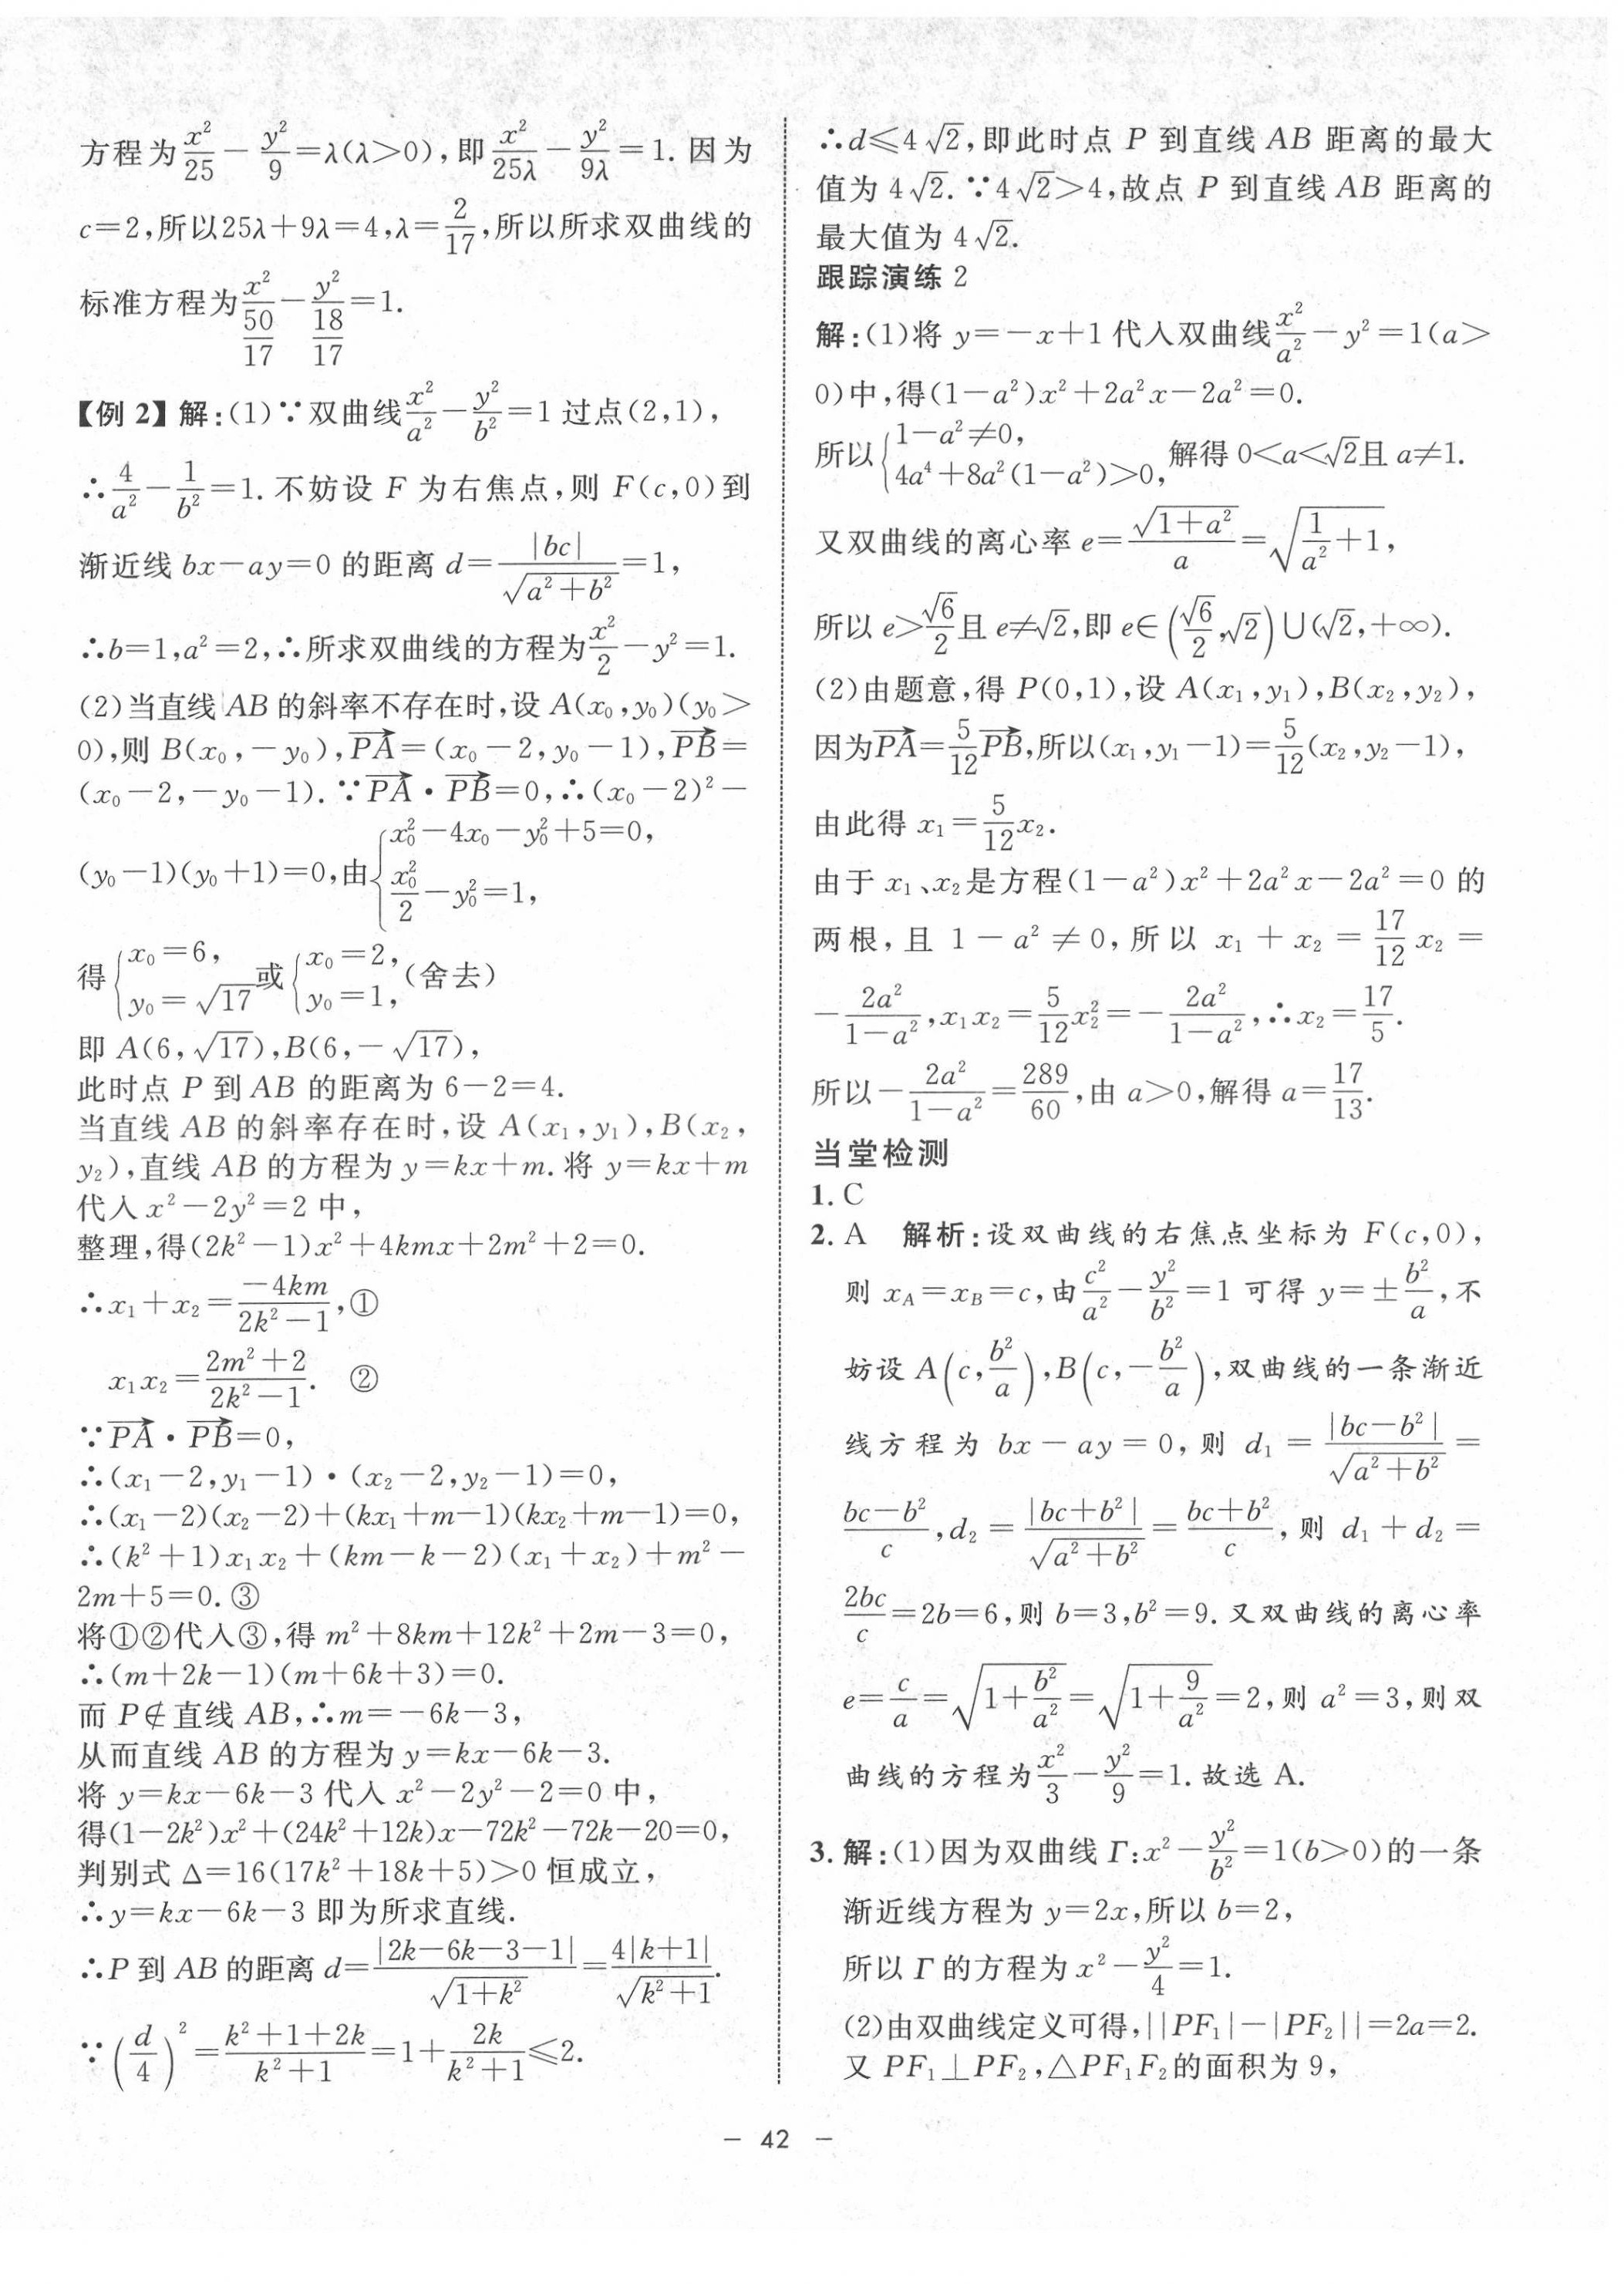 方程为x²/25－y²/9＝λ(λ＞0),即x²/25λ－y²/9λ＝1. 因为
c＝2,所以25λ＋9λ＝4,λ＝2/17,所以所求双曲线的
标准方程为x²/(50/17)－y²/(18/17)＝1.
【例 2】解:(1)∵双曲线x²/a²－y²/b²＝1 过点(2,1),
∴4/a²－1/b²＝1. 不妨设 F 为右焦点,则 F(c,0)到
渐近线 bx－ay＝0 的距离 d＝|bc|/√(a²＋b²)＝1,
∴b＝1,a²＝2,∴所求双曲线的方程为x²/2－y²＝1.
(2)当直线 AB 的斜率不存在时,设 A(x₀,y₀)(y₀＞
0),则 B(x₀,－y₀),PA→＝(x₀－2,y₀－1),PB→＝
(x₀－2,－y₀－1). ∵PA→·PB→＝0,∴(x₀－2)²－
(y₀－1)(y₀＋1)＝0,由{x₀²－4x₀－y₀²＋5＝0, x₀²/2－y₀²＝1,
得{x₀＝6, y₀＝√17 或{x₀＝2, y₀＝1, (舍去)
即 A(6,√17),B(6,－√17),
此时点 P 到 AB 的距离为 6－2＝4.
当直线 AB 的斜率存在时,设 A(x₁,y₁),B(x₂,
y₂),直线 AB 的方程为 y＝kx＋m. 将 y＝kx＋m
代入 x²－2y²＝2 中,
整理,得(2k²－1)x²＋4kmx＋2m²＋2＝0.
∴x₁＋x₂＝－4km/(2k²－1),①
x₁x₂＝(2m²＋2)/(2k²－1). ②
∵PA→·PB→＝0,
∴(x₁－2,y₁－1)·(x₂－2,y₂－1)＝0,
∴(x₁－2)(x₂－2)＋(kx₁＋m－1)(kx₂＋m－1)＝0,
∴(k²＋1)x₁x₂＋(km－k－2)(x₁＋x₂)＋m²－
2m＋5＝0. ③
将①②代入③,得 m²＋8km＋12k²＋2m－3＝0,
∴(m＋2k－1)(m＋6k＋3)＝0.
而 P∉直线 AB,∴m＝－6k－3,
从而直线 AB 的方程为 y＝kx－6k－3.
将 y＝kx－6k－3 代入 x²－2y²－2＝0 中,
得(1－2k²)x²＋(24k²＋12k)x－72k²－72k－20＝0,
判别式 Δ＝16(17k²＋18k＋5)＞0 恒成立,
∴y＝kx－6k－3 即为所求直线.
∴P 到 AB 的距离 d＝|2k－6k－3－1|/√(1＋k²)＝4|k＋1|/√(k²＋1).
∵(d/4)²＝(k²＋1＋2k)/(k²＋1)＝1＋2k/(k²＋1)≤2.
∴d≤4√2,即此时点 P 到直线 AB 距离的最大
值为 4√2. ∵4√2＞4,故点 P 到直线 AB 距离的
最大值为 4√2.
跟踪演练 2
解:(1)将 y＝－x＋1 代入双曲线x²/a²－y²＝1(a＞
0)中,得(1－a²)x²＋2a²x－2a²＝0.
所以{1－a²≠0, 4a⁴＋8a²(1－a²)＞0, 解得 0＜a＜√2且 a≠1.
又双曲线的离心率 e＝√(1＋a²)/a＝√(1/a²＋1),
所以 e＞√6/2且 e≠√2,即 e∈(√6/2,√2)∪(√2,＋∞).
(2)由题意,得 P(0,1),设 A(x₁,y₁),B(x₂,y₂),
因为PA→＝5/12PB→,所以(x₁,y₁－1)＝5/12(x₂,y₂－1),
由此得 x₁＝5/12x₂.
由于 x₁、x₂是方程(1－a²)x²＋2a²x－2a²＝0 的
两根,且 1－a²≠0,所以 x₁＋x₂＝17/12x₂＝
－2a²/(1－a²),x₁x₂＝5/12x₂²＝－2a²/(1－a²),∴x₂＝17/5.
所以－2a²/(1－a²)＝289/60,由 a＞0,解得 a＝17/13.
当堂检测
1. C
2. A 解析:设双曲线的右焦点坐标为 F(c,0),
则 x_A＝x_B＝c,由c²/a²－y²/b²＝1 可得 y＝±b²/a,不
妨设 A(c,b²/a),B(c,－b²/a),双曲线的一条渐近
线方程为 bx－ay＝0,则 d₁＝|bc－b²|/√(a²＋b²)＝
(bc－b²)/c,d₂＝|bc＋b²|/√(a²＋b²)＝(bc＋b²)/c,则 d₁＋d₂＝
2bc/c＝2b＝6,则 b＝3,b²＝9. 又双曲线的离心率
e＝c/a＝√(1＋b²/a²)＝√(1＋9/a²)＝2,则 a²＝3,则双
曲线的方程为x²/3－y²/9＝1. 故选 A.
3. 解:(1)因为双曲线 Γ:x²－y²/b²＝1(b＞0)的一条
渐近线方程为 y＝2x,所以 b＝2,
所以 Γ 的方程为 x²－y²/4＝1.
(2)由双曲线定义可得,||PF₁|－|PF₂||＝2a＝2.
又 PF₁⊥PF₂,△PF₁F₂的面积为 9,
－ 42 －